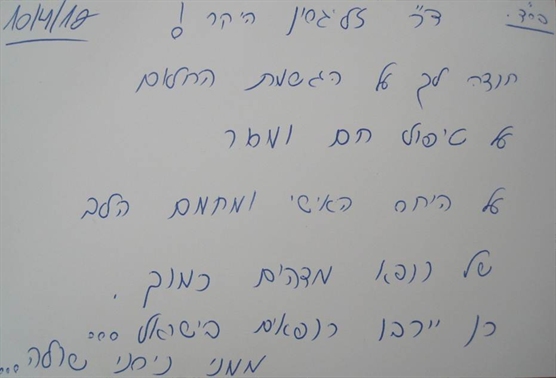 בס"ד. ד"ר זליגסון היקר! 10/4/18
תודה לך על הגשמת החלום
על טיפול חם ומסור
על היחס האישי ומחמם הלב
של רופא מדהים כמוך.
כן ירבו רופאים בישראל...
ממני ניחני שולה...